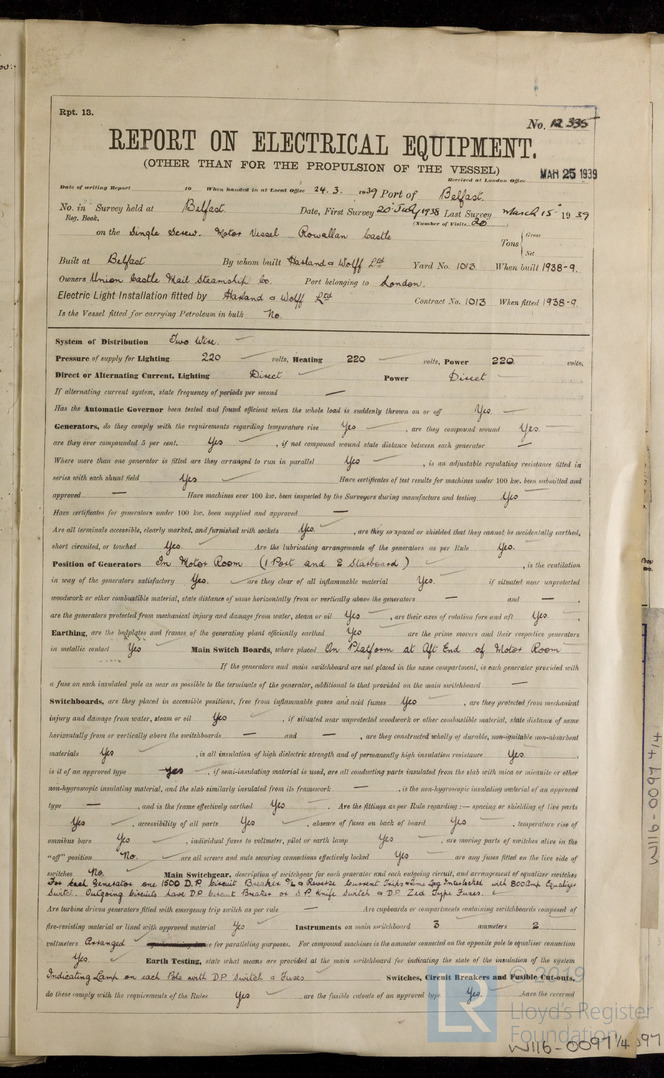 Rpt. 13.
No. 12335
REPORT ON ELECTRICAL EQUIPMENT.
(OTHER THAN FOR THE PROPULSION OF THE VESSEL)
Received at London Office MAR 25 1939
Date of writing Report 19 When handed in at Local Office 24.3. 1939 Port of Belfast.
No. in Survey held at Belfast Date, First Survey 20th July 1938 Last Survey March 15th 1939
Reg. Book. (Number of Visits 20
on the Single Screw. Motor Vessel Rowallan Castle Tons { Gross
Net
Built at Belfast By whom built Harland & Wolff Ltd Yard No. 1013. When built 1938-9.
Owners Union Castle Mail Steamship Co. Port belonging to London.
Electric Light Installation fitted by Harland & Wolff Ltd Contract No. 1013 When fitted 1938-9.
Is the Vessel fitted for carrying Petroleum in bulk No.
System of Distribution Two Wire.
Pressure of supply for Lighting 220 volts, Heating 220 volts, Power 220 volts,
Direct or Alternating Current, Lighting Direct Power Direct
If alternating current system, state frequency of periods per second —
Has the Automatic Governor been tested and found efficient when the whole load is suddenly thrown on or off Yes.
Generators, do they comply with the requirements regarding temperature rise Yes, are they compound wound Yes.
are they over compounded 5 per cent. Yes, if not compound wound state distance between each generator —
Where more than one generator is fitted are they arranged to run in parallel Yes, is an adjustable regulating resistance fitted in
series with each shunt field Yes Have certificates of test results for machines under 100 kw. been submitted and
approved — Have machines over 100 kw. been inspected by the Surveyors during manufacture and testing Yes
Have certificates for generators under 100 kw. been supplied and approved —
Are all terminals accessible, clearly marked, and furnished with sockets Yes., are they so spaced or shielded that they cannot be accidentally earthed,
short circuited, or touched Yes. Are the lubricating arrangements of the generators as per Rule Yes.
Position of Generators In Motor Room (1 Port and 2 Starboard), is the ventilation
in way of the generators satisfactory Yes. are they clear of all inflammable material Yes. if situated near unprotected
woodwork or other combustible material, state distance of same horizontally from or vertically above the generators — and —,
are the generators protected from mechanical injury and damage from water, steam or oil Yes, are their axes of rotation fore and aft Yes.
Earthing, are the bedplates and frames of the generating plant efficiently earthed Yes are the prime movers and their respective generators
in metallic contact Yes Main Switch Boards, where placed On Platform at Aft End of Motor Room
If the generators and main switchboard are not placed in the same compartment, is each generator provided with
a fuse on each insulated pole as near as possible to the terminals of the generator, additional to that provided on the main switchboard —
Switchboards, are they placed in accessible positions, free from inflammable gases and acid fumes Yes, are they protected from mechanical
injury and damage from water, steam or oil Yes, if situated near unprotected woodwork or other combustible material, state distance of same
horizontally from or vertically above the switchboards — and —, are they constructed wholly of durable, non-ignitable non-absorbent
materials Yes, is all insulation of high dielectric strength and of permanently high insulation resistance Yes.,
is it of an approved type yes, if semi-insulating material is used, are all conducting parts insulated from the slab with mica or micanite or other
non-hygroscopic insulating material, and the slab similarly insulated from its framework —, is the non-hygroscopic insulating material of an approved
type —, and is the frame effectively earthed Yes. Are the fittings as per Rule regarding :— spacing or shielding of live parts
Yes, accessibility of all parts Yes, absence of fuses on back of board Yes temperature rise of
omnibus bars Yes, individual fuses to voltmeter, pilot or earth lamp Yes, are moving parts of switches alive in the
"off" position No., are all screws and nuts securing connections effectively locked Yes are any fuses fitted on the live side of
switches No. Main Switchgear, description of switchgear for each generator and each outgoing circuit, and arrangement of equaliser switches
For each Generator one 1500 D.P. Circuit Breaker O/L & Reverse Current Trips & Time Lag Interlocked with 800 Amp Equaliser
Switch. Outgoing Circuits have D.P. Circuit Breaker or D.P. Knife Switch & D.P. Zed Type Fuses.
Are turbine driven generators fitted with emergency trip switch as per rule — Are cupboards or compartments containing switchboards composed of
fire-resisting material or lined with approved material Yes Instruments on main switchboard 3 ammeters 2
voltmeters Arranged for paralleling purposes. For compound machines is the ammeter connected on the opposite pole to equaliser connection
Yes. Earth Testing, state what means are provided at the main switchboard for indicating the state of the insulation of the system
Indicating Lamp on each Pole with D.P. Switch & Fuses Switches, Circuit Breakers and Fusible Cut-outs,
do these comply with the requirements of the Rules Yes are the fusible cutouts of an approved type Yes. have the reversed
© 2019
LR
Lloyd's Register
Foundation
W116-0097 1/4
W116-0097 1/4